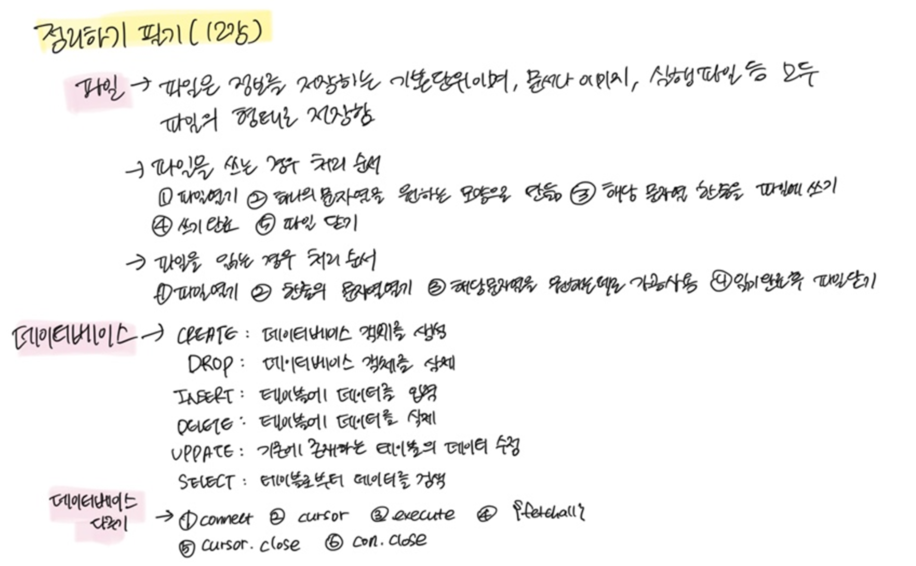 정리하기 필기(12강)
파일 → 파일은 정보를 저장하는 기본단위이며, 문서나 이미지, 실행파일 등 모두
파일의 형태로 저장함
→ 파일을 쓰는 경우 처리 순서
① 파일열기 ② 하나의 문자열을 원하는 모양으로 만듦 ③ 해당 문자열 한줄을 파일에 쓰기
④ 쓰기 완료 ⑤ 파일 닫기
→ 파일을 읽는 경우 처리 순서
① 파일열기 ② 한줄의 문자열열기 ③ 해당문자열을 원하는데로 가공사용 ④ 읽기완료후 파일닫기
데이터베이스 → CREATE : 데이터베이스 객체를 생성
DROP : 데이터베이스 객체를 삭제
INSERT : 테이블에 데이터를 입력
DELETE : 테이블에 데이터를 삭제
UPPATE : 기존에 존재하는 테이블의 데이터 수정
SELECT : 테이블로부터 데이터를 검색
데이터베이스
다루기 → ① connect ② cursor ③ execute ④ {fetchall}
⑤ cursor.close ⑥ con.close